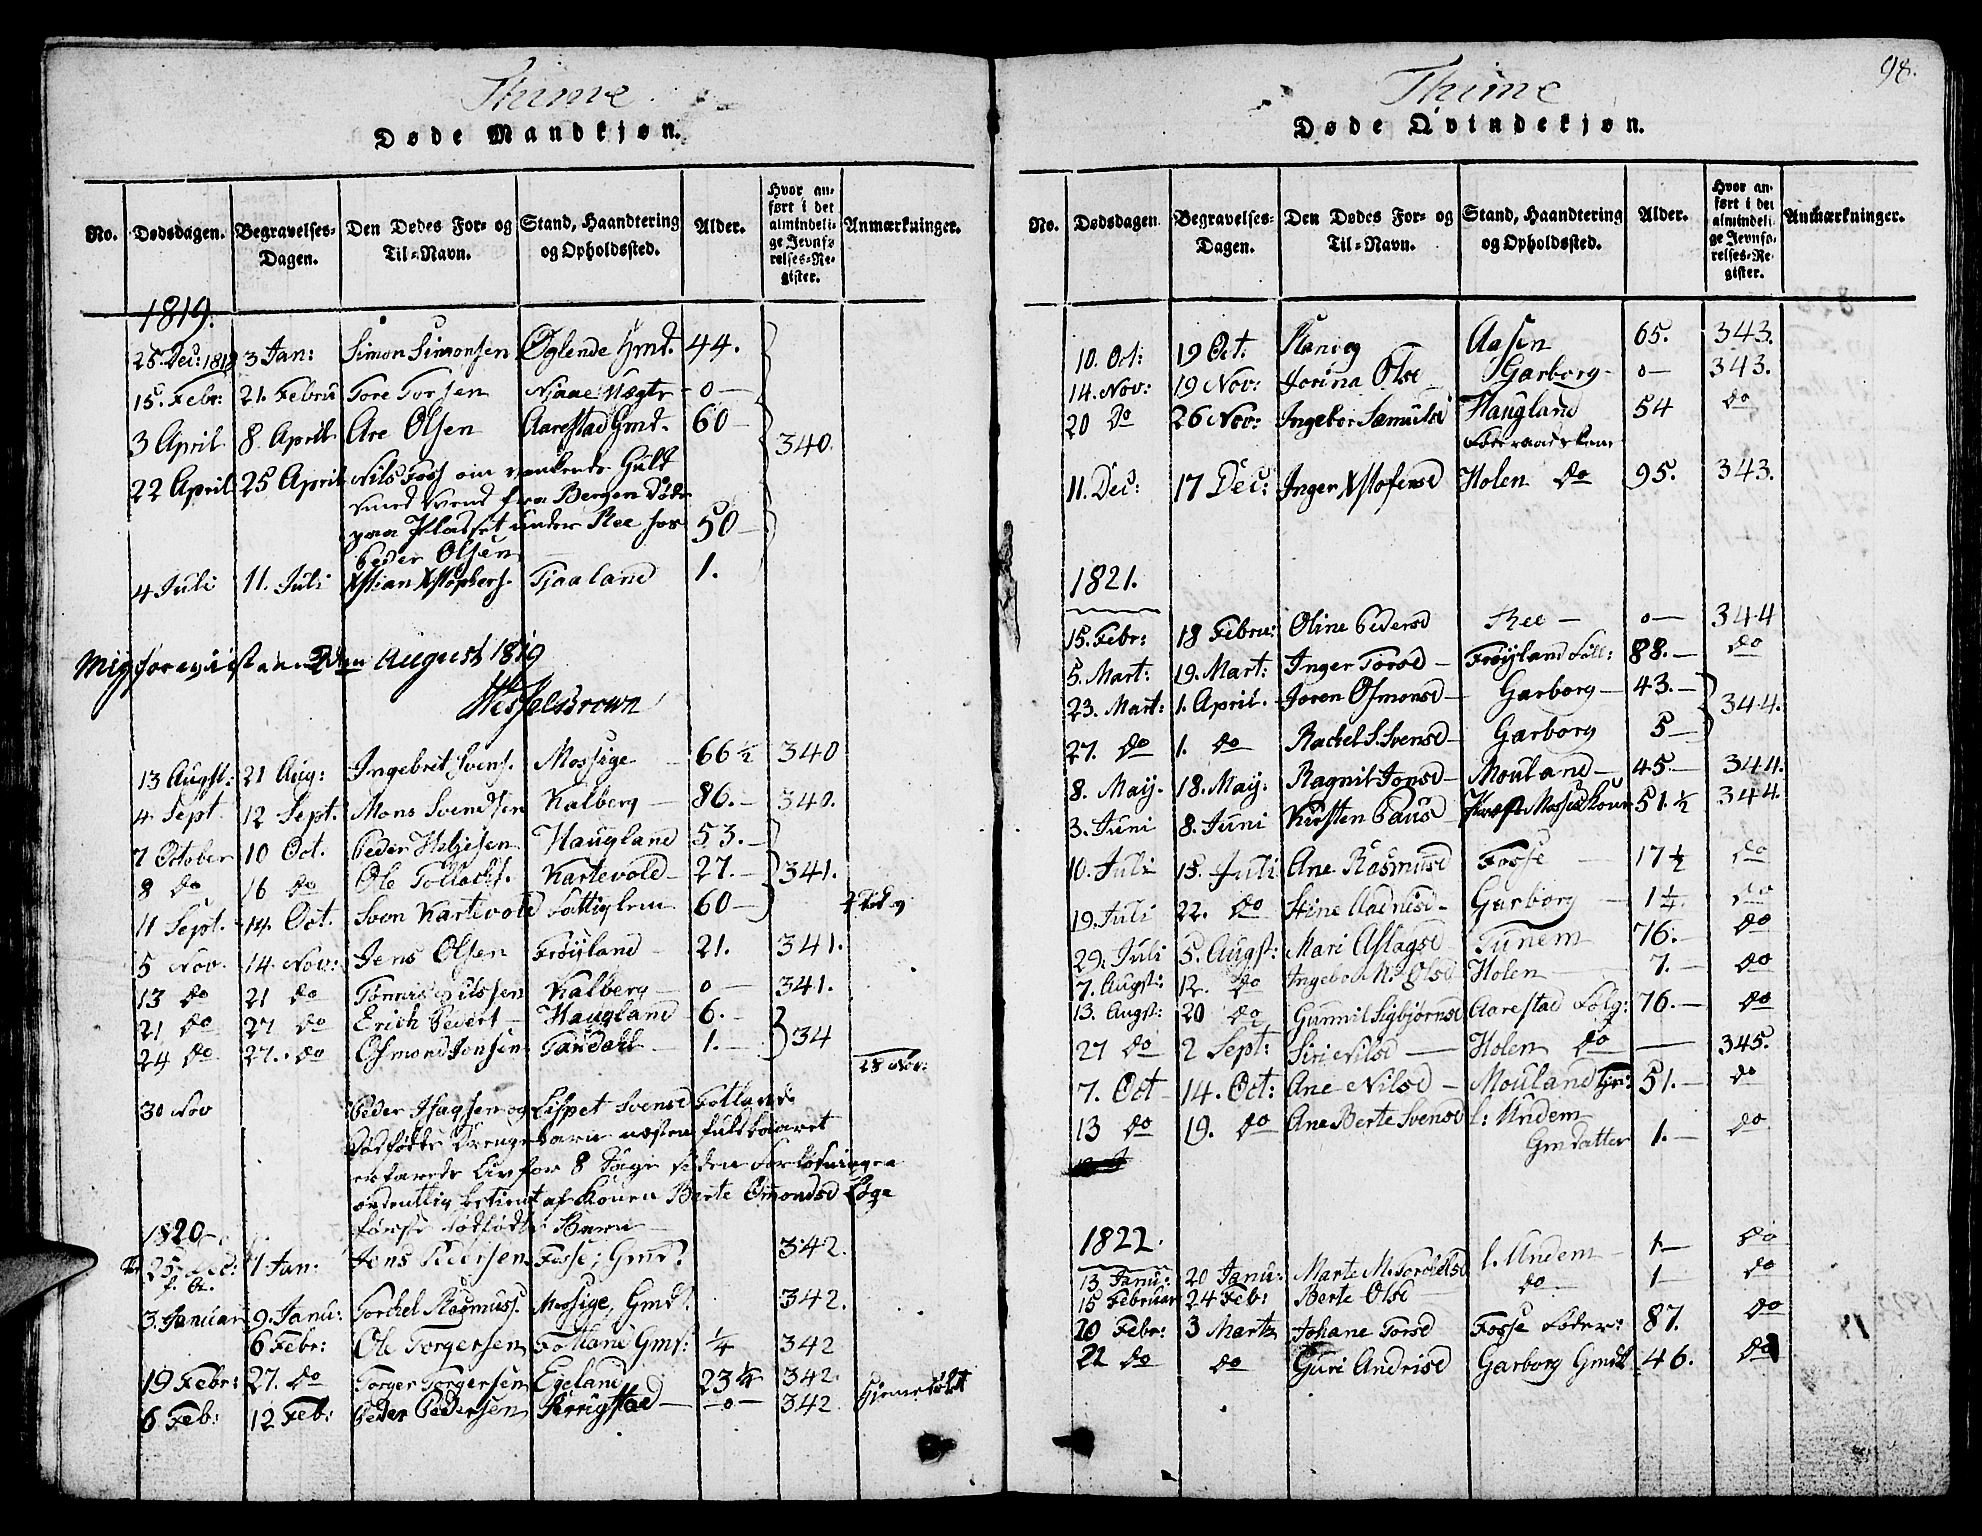 Thime
Døde Mandkjøn.
No. Dødsdagen. Begravelses-Dagen. Den Dødes For- og Til-Navn. Stand, Haandtering og Opholdssted. Alder. Hvor anført i det almindelige Jevnførelses-Register. Anmærkninger.
1819.
25. Dec: 1818 3 Jan: Simon Simonsen Øglende Gmd. 44.
15. Febr: 21. Febru Tore Torsen Njaae 0
3 April 8. April Are Olsen Aarestad Gmd. 60 340.
22 April 25 April Nils Foss om vankende Guld
smed Svend fra Bergen Død
paa Pladset under Ree hos 50
Peder Olsen
4 Juli 11. Juli Xstian Xstophers. Tjaaland 1.
August 1819
13 Augst: 21 Aug: Ingebret Svens. Mossige 66 ½ 340
4 Sept. 12 Sept. Mons Svendsen Kalberg 86. 340.
7 October 10 Oct. Peder Haugland 53.
8 do 16 do Ole Tollachs. Kartevold 27. 341.
11 Sept. 14. Oct. Svon Kartevold Fattiglem 60
5 Nov. 14. Nov: Jens Olsen Frøyland 21. 341.
13 do 21 do Tønnis Nilssen Kalberg 0 341.
21 do 27 do Erich Peders Haugland 6.
24 do 27. do Osmond Jonsen 1. 34
28 Nov:
30 Nov Peder Isaghsen og Lispet Svensd Fotland
Dødfødte Drengebarn næsten fuldbaaret
Liv for 8 Dage siden Forløsningen
ordentlig betient af Konen Berte Osmondsd Lÿe
første dødfødt Barn
1820
25. Dec: 1 Jan: Jens Peersen Fosse, Gmd 342.
3. Januar 9. Janu: Torckel Rasmuss. Mossige, Gmd 342.
6 Febr: Ole Torgersen Fotland Gms: ¼ 342
19 Febr: 27. do Torger Torgersen Egeland 23 ¼ 342.
6 Feb: 12 Feb: Peder Pedersen 0 342 Hiemedøbt
98.
Thime
Døde Qvindekjøn.
No. Dødsdagen Begravelses-Dagen. Den Dødes For- og Til-Navn. Stand, Haandtering og Opholdssted. Alder. Hvor anført i det almindelige Jevnførelses-Register. Anmærkninger.
10. Oct: 19 Oct: Aasen 65. 343.
14. Nov: 19 Nov: Jorina Olsd Garborg 0 343.
20 Do 26 Nov: Ingebor Samuelsd Haugland 54 do
Føderaadskone
11. Dec: 17 Dec: Inger Xstofersd Holen do 95. 343.
1821.
15. Febr: 18 Febru: Oline Pedersd Ree 0 344
5. Mart: 19. Mart: Inger Torsd Frøyland Føll: 88. do
23. Mart: 1. April. Joren Osmonsd Garborg 43.
344.
27. do 1. do Rachel S. Svensd Garborg 5
8. May. 18. May. Ragnil Jonsd Mouland 45. 344.
3. Juni 8. Juni Kirsten Paus 51. ½ 344.
10. Juli 15. Juli Ane Rasmusd Fosse 17 ½ do
19. Juli 22. do Stine Aadnesd Garborg 1 ¼. do
29. Juli 5. Augst: Mari Aslagsd Tunem 76. do
7. Augst: 12. do Ingebor M. Olsd Holen 7. do
13. Augst: 20 do Gunnil Sigbjørnsd Aarestad Følg: 76. do
27 do 2 Sept: Siri Nilsd Holen do 345.
7. Oct 14. Oct: Ane Nilsd Mouland 51. do
13 do 19. do Ane Berte Svensd l: Undem
Gmdatter 1. do
1822.
13 Janu: 20 Janu: Marte M. Torkelsd l. Undem 1 do
15 Februar 24 Feb: Berte Olsd do 1 do
10 Febr: 3 Martz Johane Torsd Fosse Føder: 87. do
22 do do Guri Andrisd Garborg Gmdk 46. do